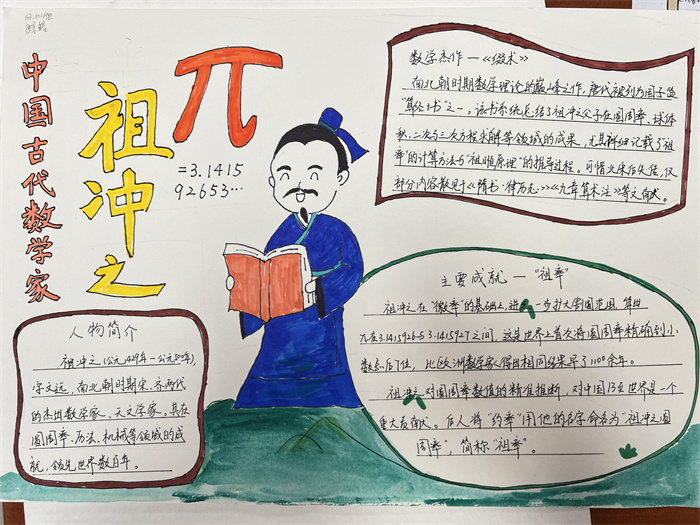 中国古代数学家
祖冲之
π
=3.1415
92653…
数学杰作—《缀术》
南北朝时期数学理论的巅峰之作，唐代被列为国子监
"算经十书"之一。该书系统总结了祖冲之父子在圆周率、球体
积、二次与三次方程求解等领域的成果，尤其详细记载了"祖
率"的计算方法与"祖暅原理"的推导过程。可惜北宋后失传，仅
部分内容散见于《隋书·律历志》《九章算术注》等文献。
人物简介
祖冲之（公元429年—公元500年），
字文远，南北朝时期宋、齐两代
的杰出数学家、天文学家。其在
圆周率、历法、机械等领域的成
就，领先世界数百年。
主要成就—"祖率"
祖冲之在"徽率"的基础上，进一步扩大割圆范围，算出
π在3.1415926与3.1415927之间，这是世界上首次将圆周率精确到小
数点后7位，比欧洲数学家得出相同结果早了1100余年。
祖冲之对圆周率数值的精准推断，对中国乃至世界是一个
重大贡献。后人将"约率"用他的名字命名为"祖冲之圆
周率"，简称"祖率"。